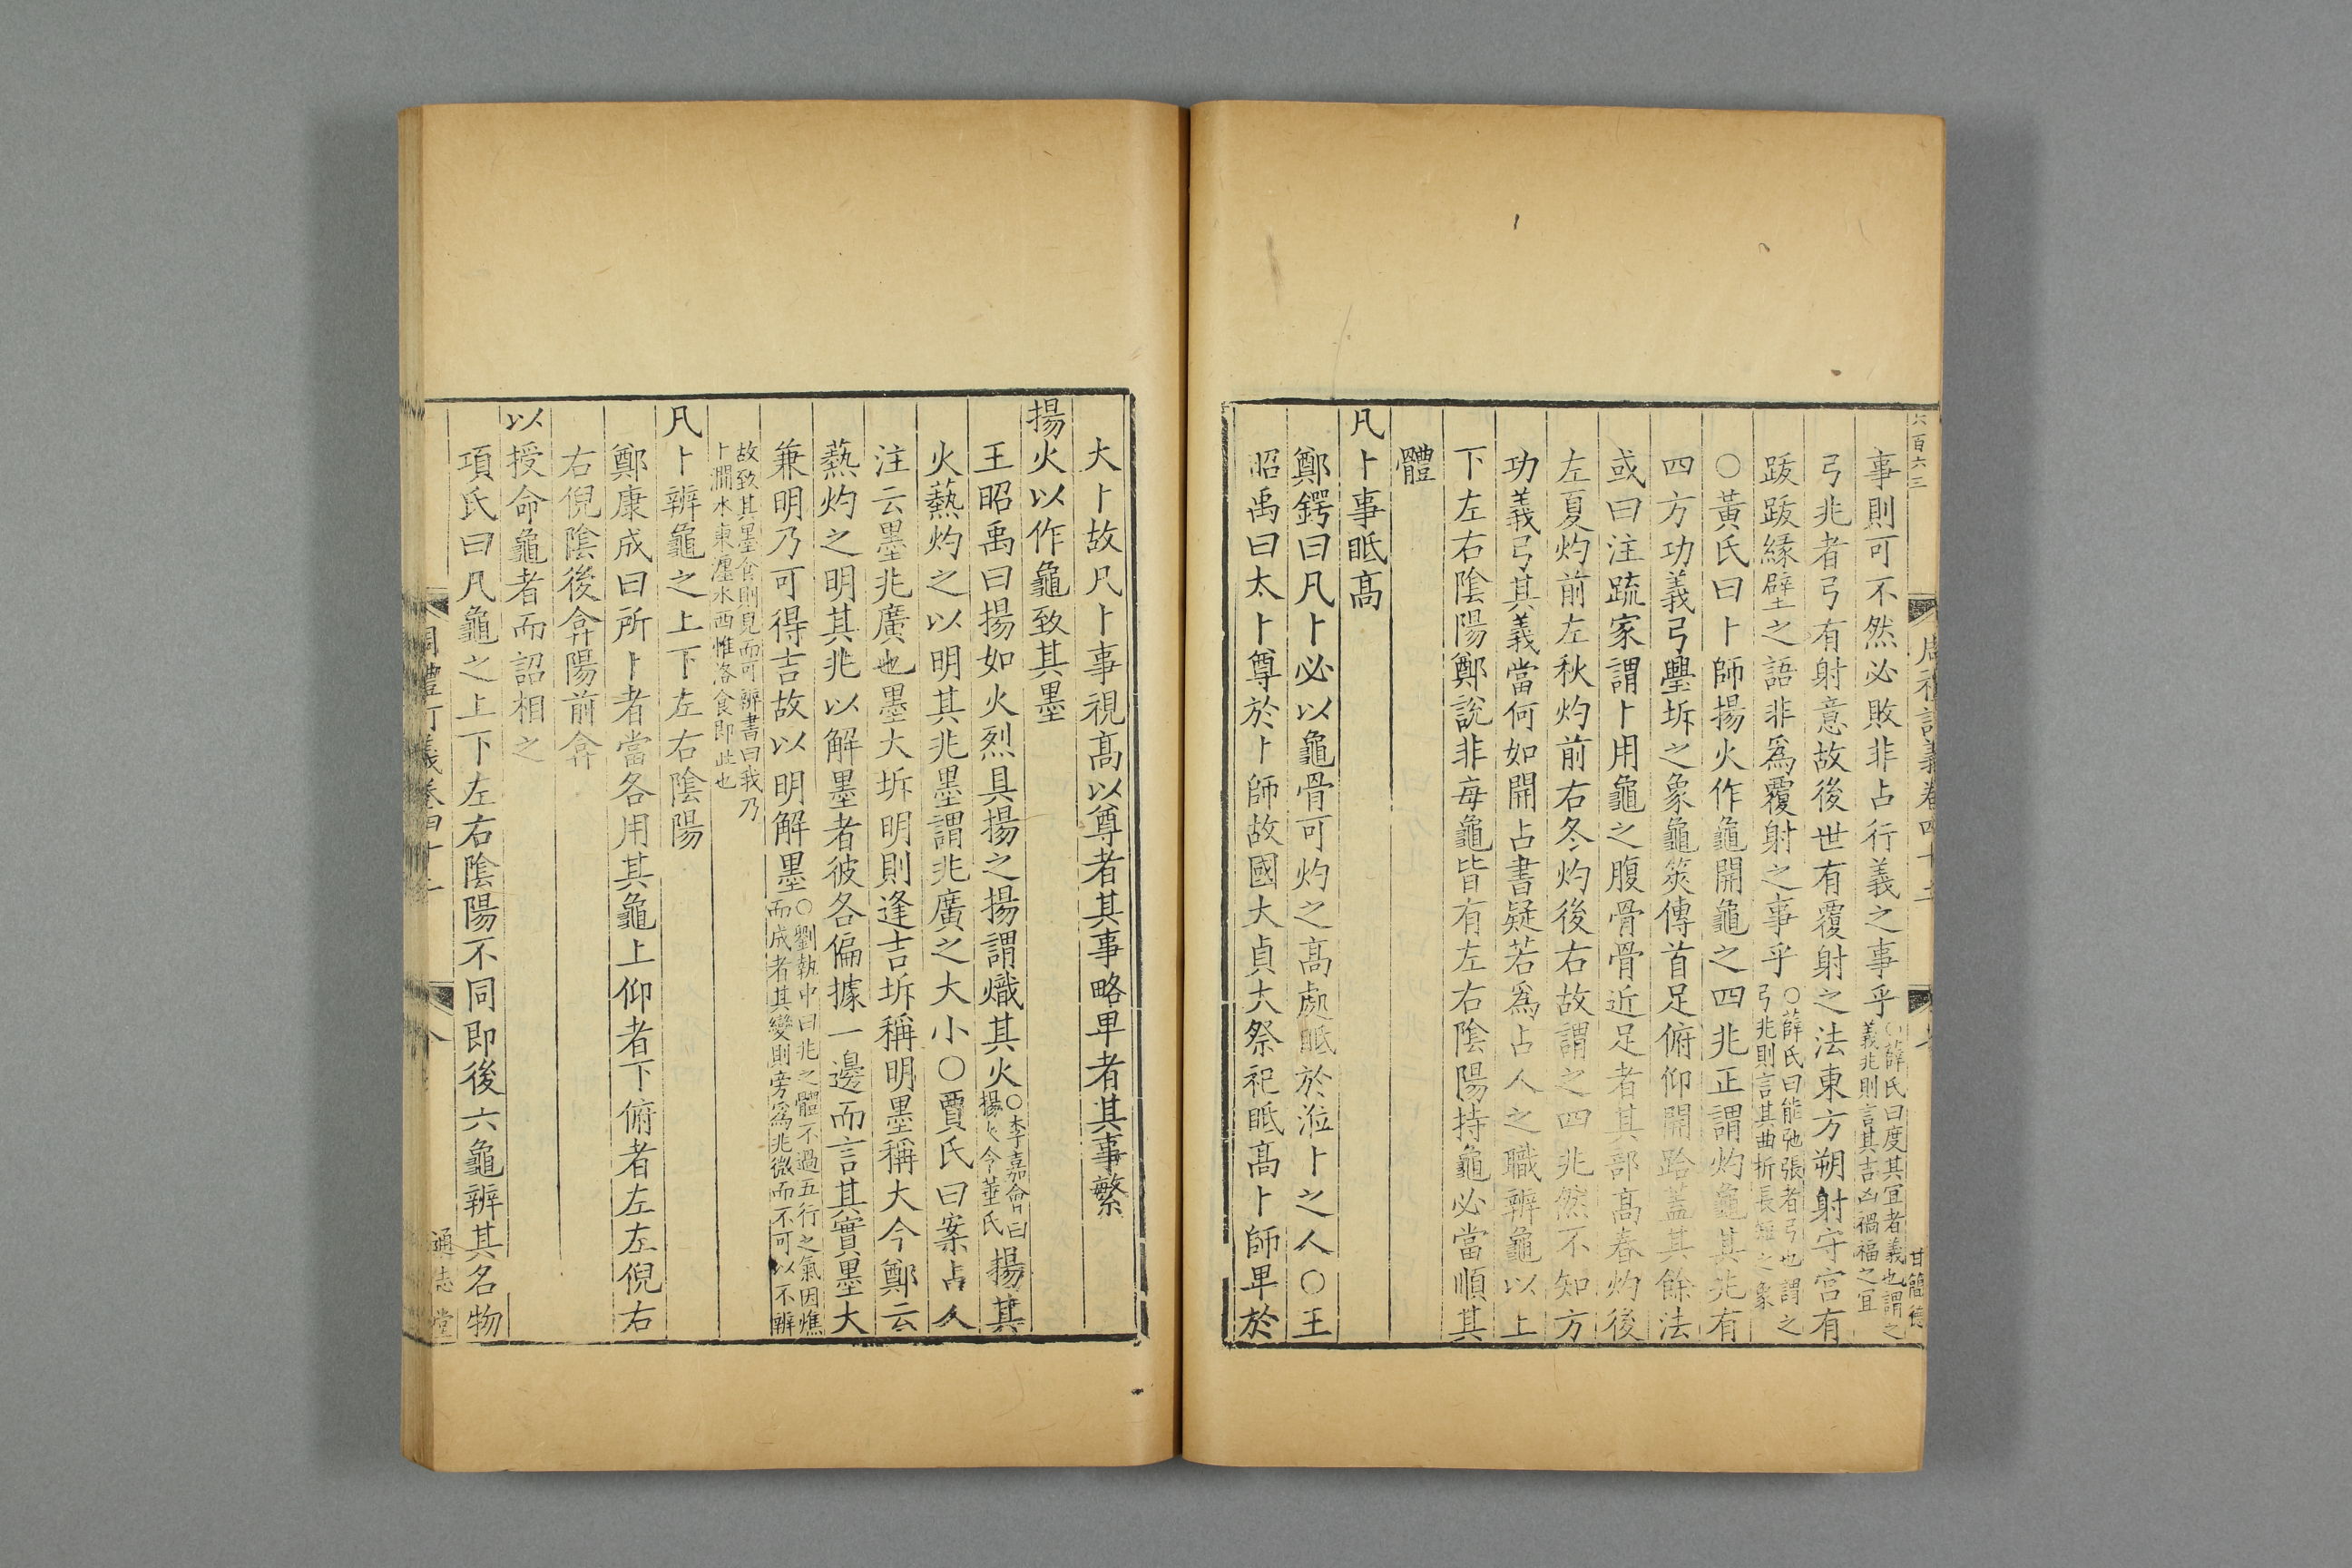 六百六三
周禮訂義卷四十二
甘簡
事則可不然必敗非占行義之事乎○薛氏曰度其宜者義也謂之義兆則言其吉凶禍福之宜
弓兆者弓有射意故後世有覆射之法東方朔射守宮有
跋跋緣壁之語非爲覆射之事乎○薛氏曰能弛張者弓也謂之弓兆則言其曲折長短之象
○黃氏曰卜師揚火作龜開龜之四兆正謂灼龜其兆有
四方功義弓舋坼之象龜筴傳首足俯仰開跲蓋其餘法
或曰注疏家謂卜用龜之腹骨骨近足者其部高春灼後
左夏灼前左秋灼前右冬灼後右故謂之四兆然不知方
功義弓其義當何如開占書疑若爲占人之職辨龜以上
下左右陰陽鄭說非每龜皆有左右陰陽持龜必當順其
體
凡卜事眡高
鄭鍔曰凡卜必以龜骨可灼之高處眡於涖卜之人○王
昭禹曰太卜尊於卜師故國大貞大祭祀眡高卜師卑於
大卜故凡卜事視高以尊者其事略卑者其事繁
揚火以作龜致其墨
王昭禹曰揚如火烈具揚之揚謂熾其火○李嘉會曰揚火今菙氏揚其
火爇灼之以明其兆墨謂兆廣之大小○賈氏曰案占人
注云墨兆廣也墨大坼明則逢吉坼稱明墨稱大今鄭云
爇灼之明其兆以解墨者彼各偏據一邊而言其實墨大
兼明乃可得吉故以明解墨○劉執中曰兆之體不過五行之氣因燋而成者其變則旁爲兆微而不可以不辨
故致其墨食則見而可辨書曰我乃卜澗水東瀍水西惟洛食即此也
凡卜辨龜之上下左右陰陽
鄭康成曰所卜者當各用其龜上仰者下俯者左左倪右
右倪陰後弇陽前弇
以授命龜者而詔相之
項氏曰凡龜之上下左右陰陽不同即後六龜辨其名物
周禮訂義卷四十二
八
通志堂